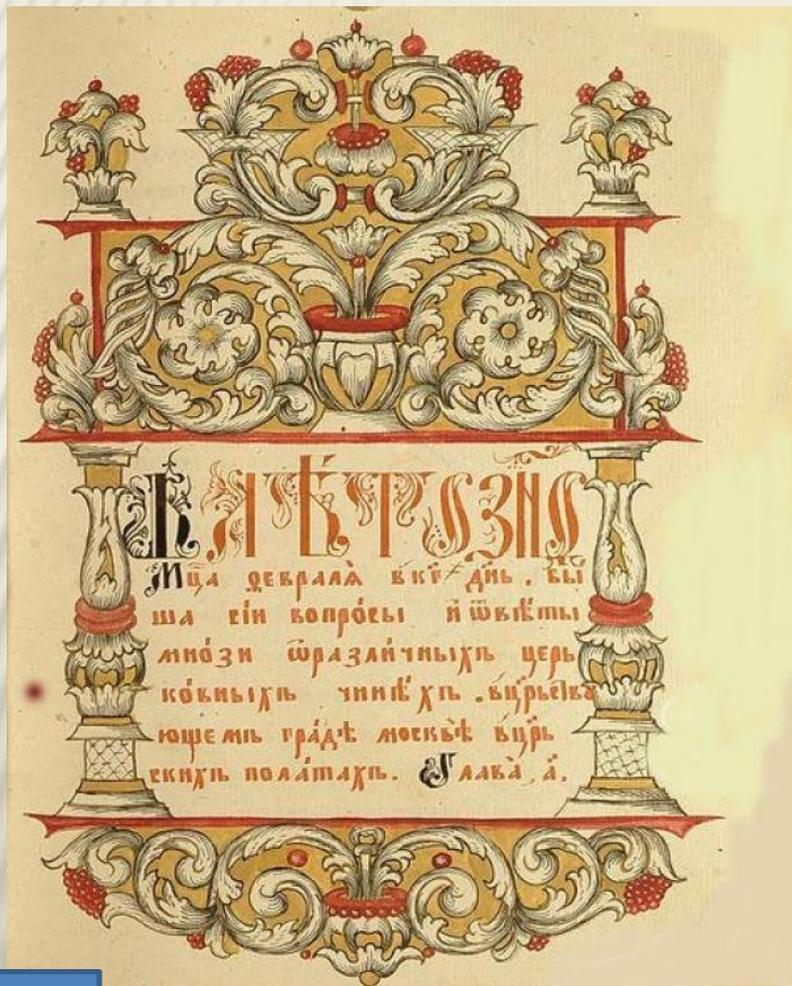 В̾ ЛѢТО ЗНѲ
Мц҃а ѳевралѧ̀ в̾ кг҃ дн҃ь . бы́
ша сїи вопро́сы и҆ ѿвѣ́ты
мно́зи ѡ҆ разли́чныхъ церь
ко́вныхъ чинѣ́хъ . в̾ цр҃ьствꙋ
ющемъ гра́дѣ москвѣ̀ в̾ цр҃ь
скихъ пола́тахъ. Глава̀ . а҃.